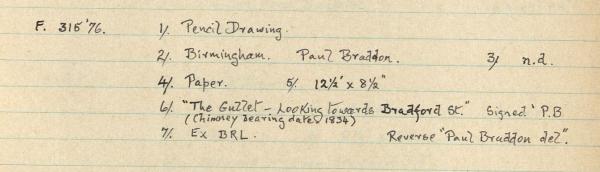 F. 315 '76. 1/. Pencil Drawing.
2/. Birmingham. Paul Braddon. 3/ n.d.
4/. Paper. 5/. 12½" x 8½"
6/. "The Gullet - Looking towards Bradford St." Signed 'P.B
(Chimney bearing date 1834)
7/. Ex BRL. Reverse "Paul Braddon del".